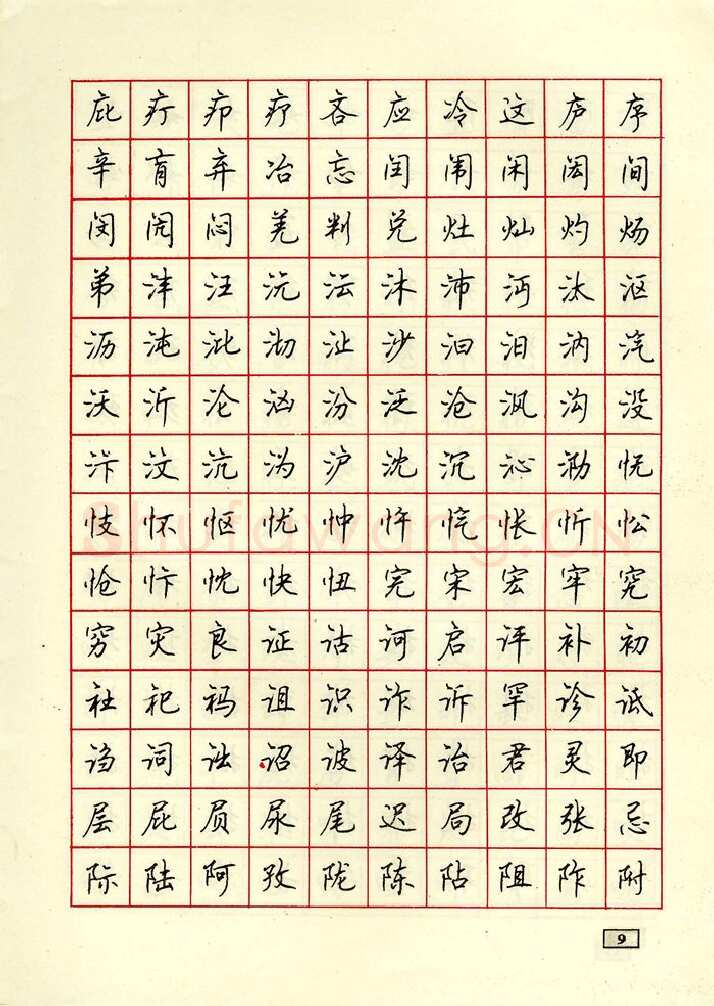 庇疔疖疗吝应冷这庐序
辛肓弃冶忘闰闱闲闳间
闵闶闷羌判兑灶灿灼炀
弟沣汪沅沄沐沛沔汰沤
沥沌沘沏沚沙汩汨汭汽
沃沂沦汹汾泛沧沨沟没
汴汶沆沩沪沈沉沁泐怃
忮怀怄忧忡忤忾怅忻忪
怆忭忱快忸完宋宏牢究
穷灾良证诂诃启评补初
社祀祃诅识诈诉罕诊诋
诌词诎诏诐译诒君灵即
层屁屃尿尾迟局改张忌
际陆阿孜陇陈阽阻阼附
9
Shufawang.CN